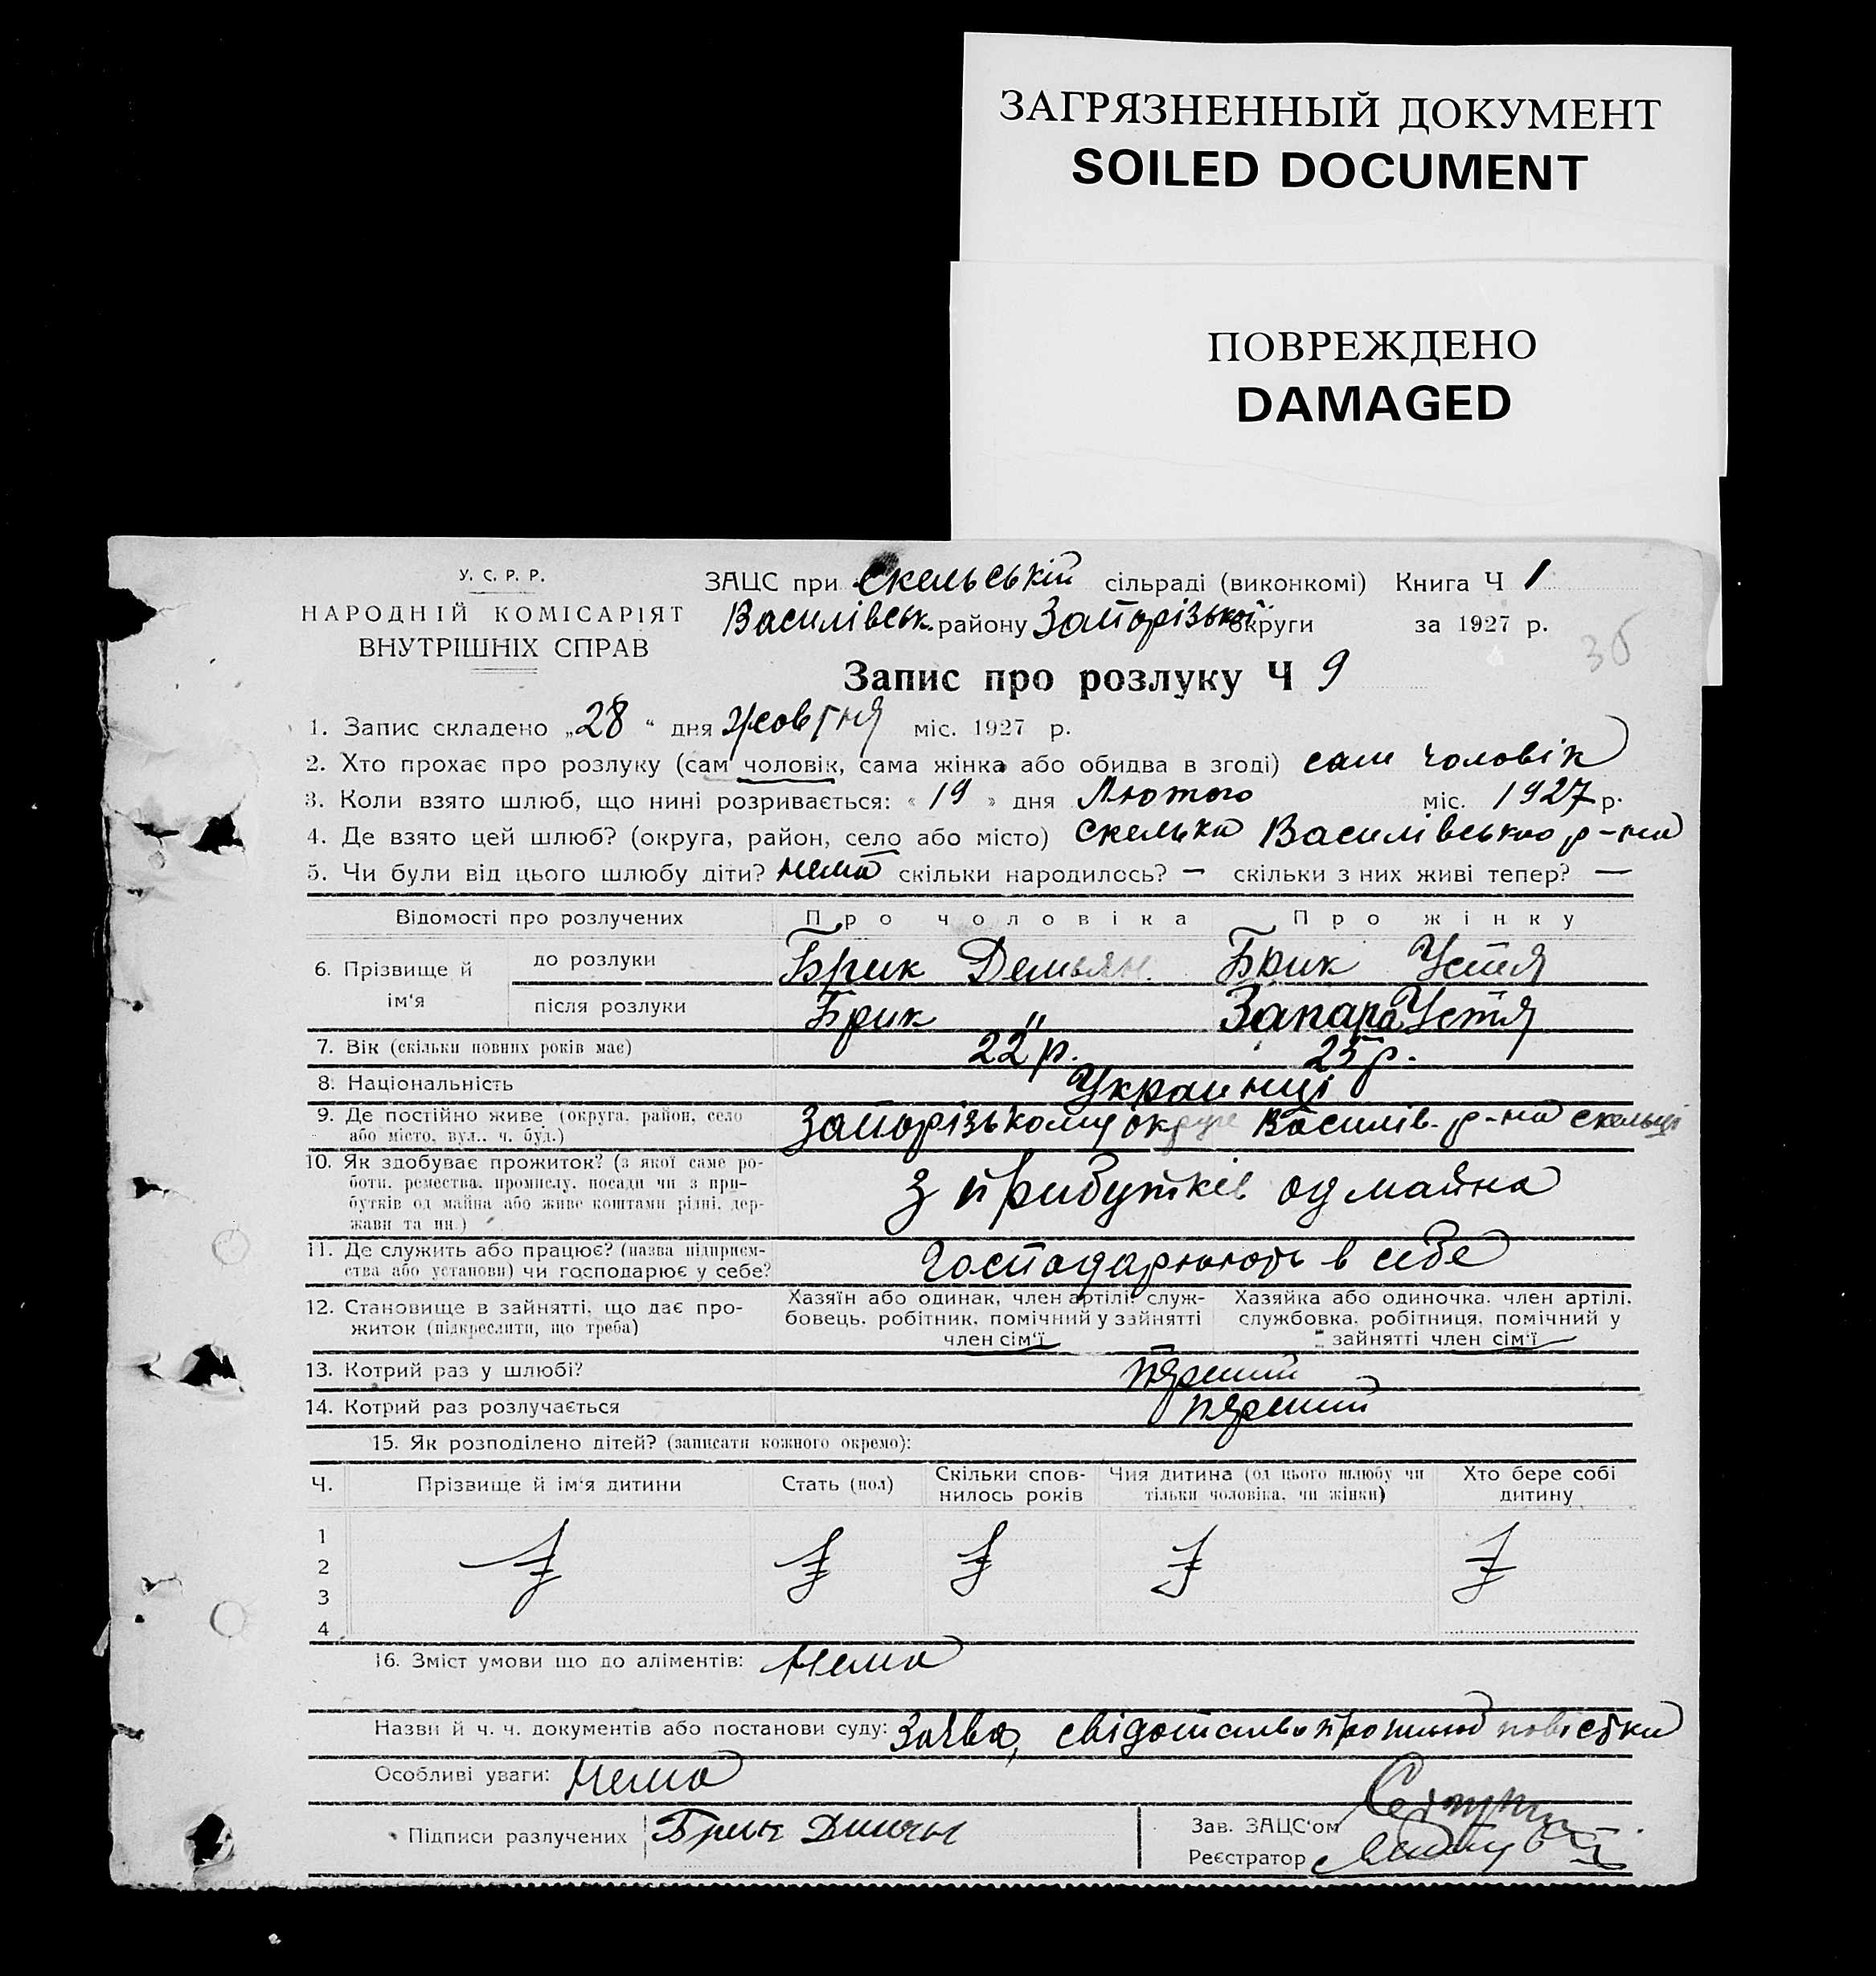 ЗАГРЯЗНЕННЫЙ ДОКУМЕНТ
SOILED DOCUMENT
ПОВРЕЖДЕНО
DAMAGED
У. С. Р. Р.
НАРОДНІЙ КОМІСАРІЯТ
ВНУТРІШНІХ СПРАВ
ЗАЦС при Скельській сільраді (виконкомі) Книга Ч 1
Василівськ. району Запорізької округи за 1927 р.
36
Запис про розлуку Ч 9
1. Запис складено „28“ дня жовтня міс. 1927 р.
2. Хто прохає про розлуку (сам чоловік, сама жінка або обидва в згоді) сам чоловік
3. Коли взято шлюб, що нині розривається: «19» дня Лютого міс. 1927 р.
4. Де взято цей шлюб? (округа, район, село або місто) Скелька Василівського р-на
5. Чи були від цього шлюбу діти? нема скільки народилось? — скільки з них живі тепер? —
Відомості про розлучених Про чоловіка Про жінку
6. Прізвище й ім'я до розлуки Брик Демьян. Брик Устя
після розлуки Брик " Запара Устя
7. Вік (скільки повних років має) 22 р. 25 р.
8. Національність Украинці
9. Де постійно живе (округа, район, село Запорізькому окрузе Василів. р-на Скельці
або місто, вул., ч. буд.)
10. Як здобуває прожиток? (з якої саме ро-
боти, ремества, промислу, посади чи з при- з прибутків од майна
бутків од майна або живе коштами рідні, дер-
жави та ин.)
11. Де служить або працює? (назва підприєм- Господарюють в себе
ства або установи) чи господарює у себе?
12. Становище в зайнятті, що дає про-
житок (підкреслити, що треба)
Хазяїн або одинак, член артілі, служ-
бовець, робітник, помічний у зайнятті
член сім'ї
Хазяйка або одиночка, член артілі,
службовка, робітниця, помічний у
зайнятті член сім'ї
13. Котрий раз у шлюбі? перший
14. Котрий раз розлучається перший
15. Як розподілено дітей? (записати кожного окремо):
Ч. Прізвище й ім'я дитини Стать (пол) Скільки спов-нилось років Чия дитина (од цього шлюбу чи тільки чоловіка, чи жінки) Хто бере собі дитину
1
2
3
4
16. Зміст умови що до аліментів: Нема
Назви й ч. ч. документів або постанови суду: Заява, свідоцтво повістки
Особливі уваги: Нема
Підписи разлучених Брик
Зав. ЗАЦС'ом
Реєстратор